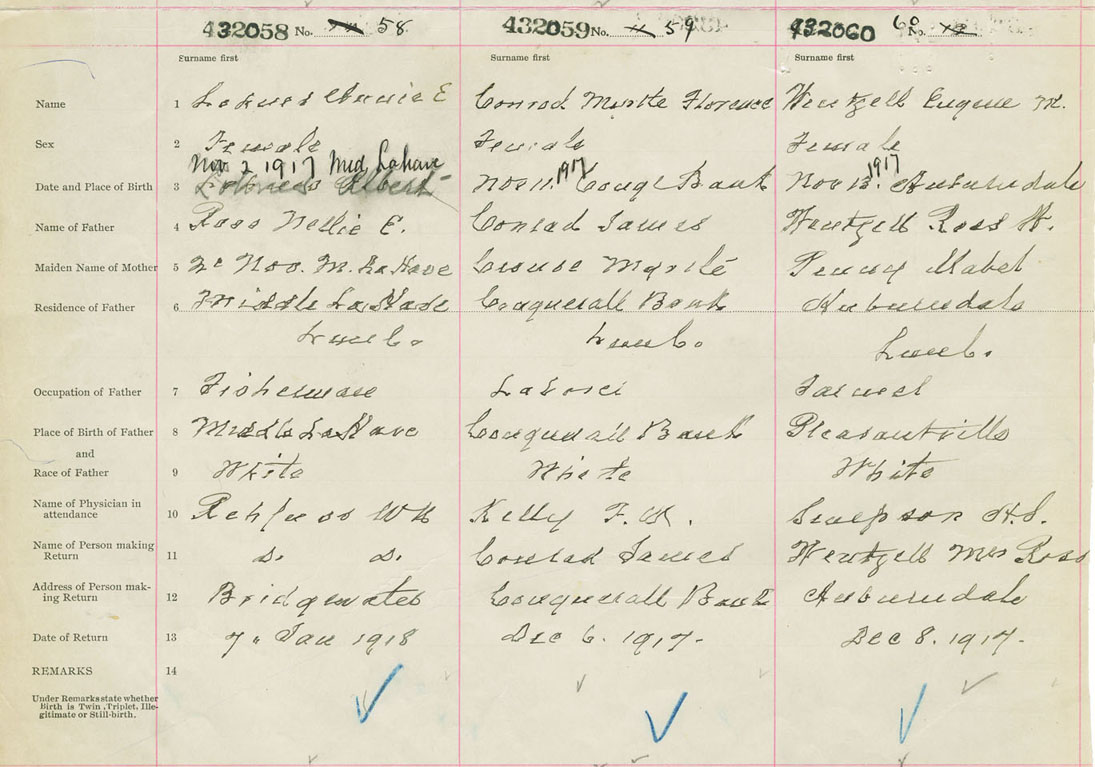 432058 No. 58 432059 No. 59 432060 60 No.
Surname first Surname first Surname first
Name 1 Annie E Conrad Myrtle Florence Wentzell Eugene M.
Sex 2 Female Female Female
Nov 2 1917 Mid Lahave 1917 1917
Date and Place of Birth 3 Albert Nov 11. Conq. Bank Nov 13. Auburndale
Name of Father 4 Ross Nellie E. Conrad James Wentzell Ross H.
Maiden Name of Mother 5 2" Nov. M. LaHave Crouse Myrtle Penny Mabel
Residence of Father 6 Middle LaHave Conquerall Bank Auburndale
Lun Co. Lun Co. Lun Co.
Occupation of Father 7 Fisherman Laborer Farmer
Place of Birth of Father 8 Middle LaHave Conquerall Bank Pleasantville
and
Race of Father 9 White White White
Name of Physician in
attendance 10 Rehfuss WH Kelly F. W. Simpson H.S.
Name of Person making
Return 11 D. D. Conrad James Wentzell Mrs Ross
Address of Person mak-
ing Return 12 Bridgewater Conquerall Bank Auburndale
Date of Return 13 7" Jan 1918 Dec 6. 1917- Dec 8. 1917-
REMARKS 14
Under Remarks state whether
Birth is Twin, Triplet, Ille-
gitimate or Still-birth.